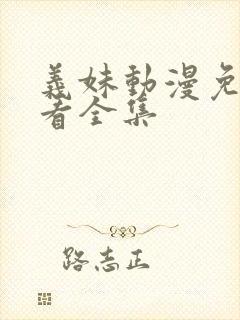 義妹動漫免
者全集
路志正